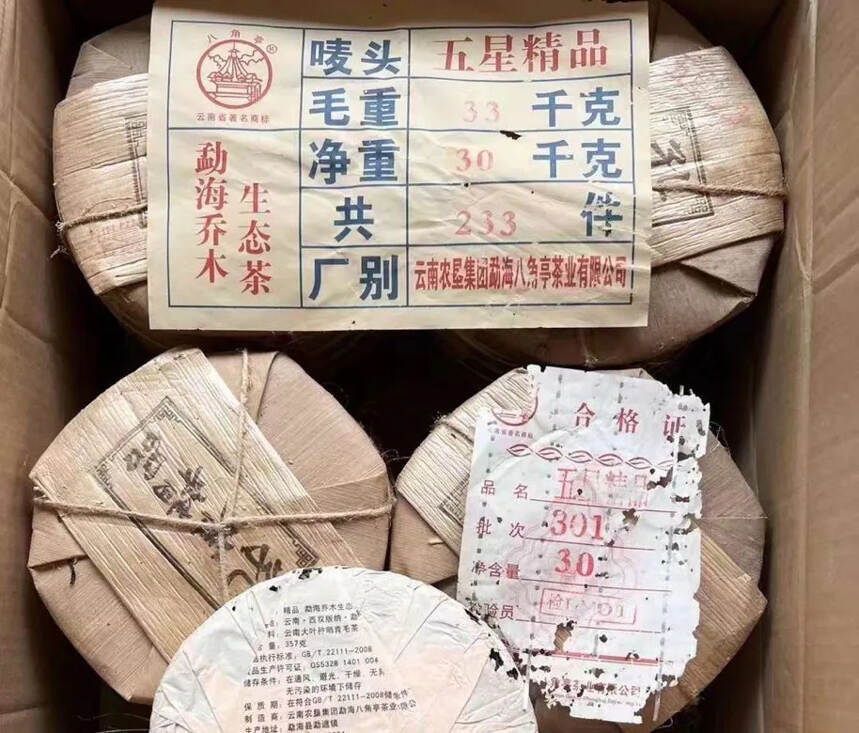 八角亭®
云南省著名商标
勐海乔木
生态茶
唛头 五星精品
毛重 33 千克
净重 30 千克
共 233 件
厂别 云南农垦集团勐海八角亭茶业有限公司
云南省著名商标
合格证
品名 五星精品
批次 301
净含量 30
检验员
精品 勐海乔木生态
云南·西双版纳·勐
料：云南大叶种晒青毛茶
量：357克
品执行标准：GB/T 22111-2008
食品生产许可证：QS5328 1401 004
储存条件：在通风、避光、干燥、无异
无污染的环境下储存
保质期：在符合GB/T 22111-2008储条件
制造商：云南农垦集团勐海八角亭茶业有限公
生产地址：勐海县勐遮镇